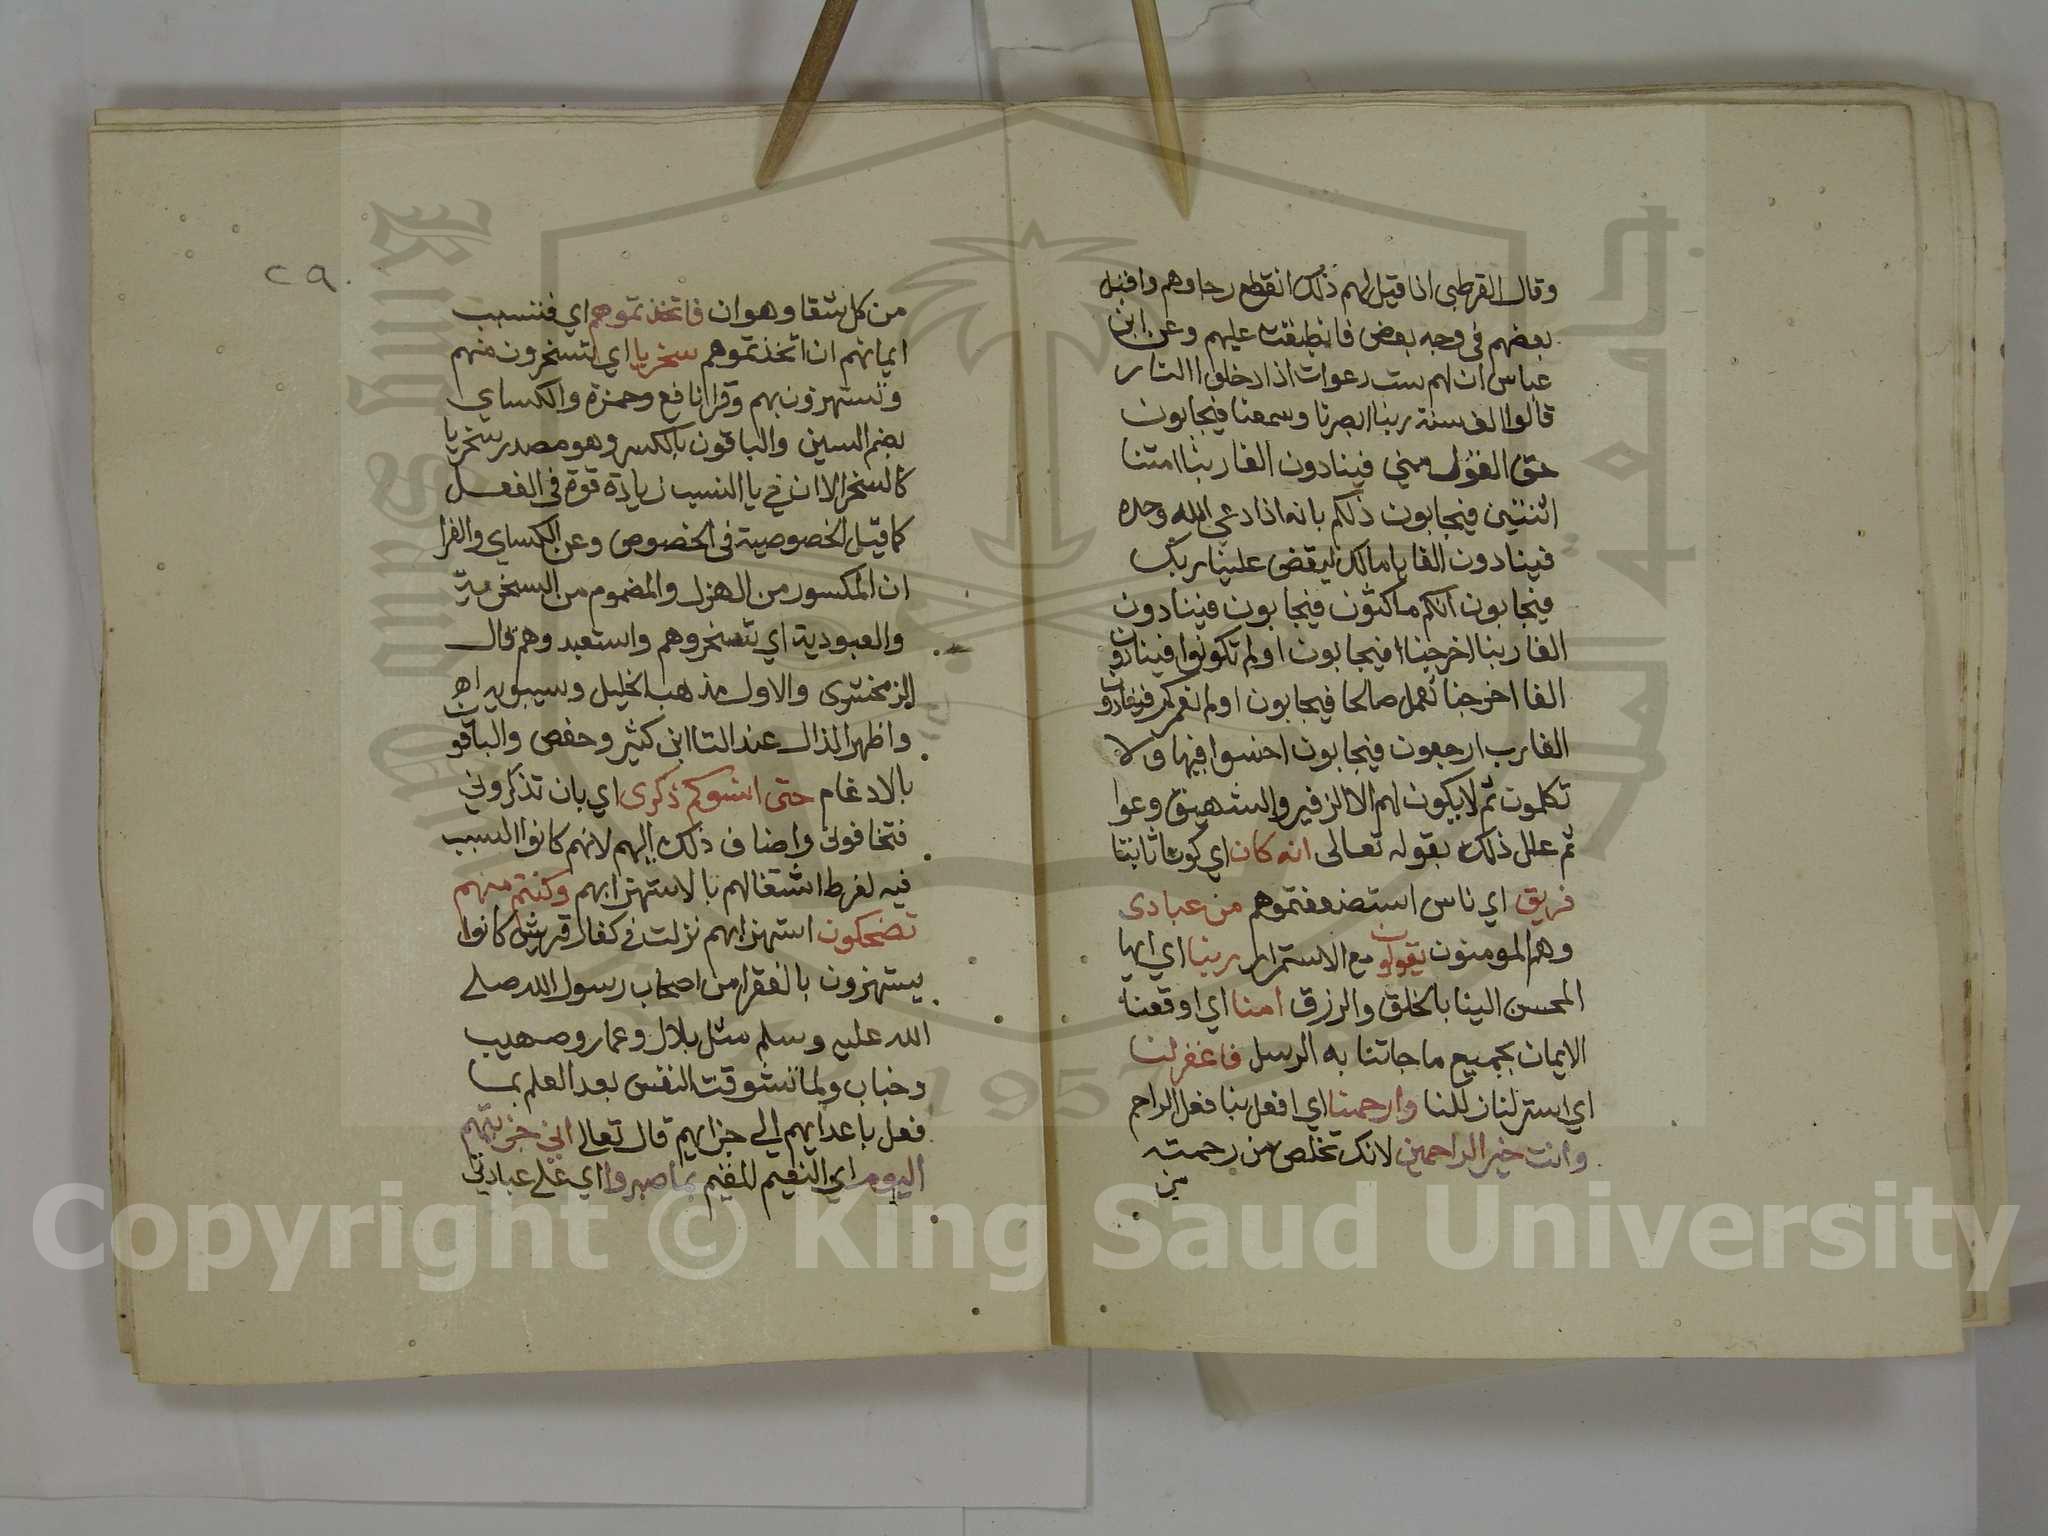 وقال القرطبي اذا قيل لهم ذلك انقطع رجاوهم واقبل
بعضهم في وجه بعض فانطبقت عليهم وعن ابن
عباس ان لهم ست دعوات اذا دخلوا النار
قالوا الف سنة ربنا ابصرنا وسمعنا فيجابون
حق القول مني فينادون الفا ربنا امتنا
اثنتين فيجابون ذلكم بانه اذا دعي الله وحده
فينادون الفا يا مالك ليقض علينا ربك
فيجابون انكم ماكثون فيجابون فينادون
الفا ربنا اخرجنا فيجابون اولم تكونوا فينادون
الفا اخرجنا نعمل صالحا فيجابون اولم نعمركم فينادون
الفا رب ارجعون فيجابون اخسوا فيها ولا
تكلمون ثم لا يكون لهم الا الزفير والشهيق وعوا
ثم علل ذلك بقوله تعالى انه كان اي كونا ثابتا
فريق اي ناس استضعفتموهم من عبادى
وهم المومنون يقولون مع الاستمرار ربنا اي ايها
المحسن الينا بالخلق والرزق امنا اي اوقعنا
الايمان بجميع ما جاتنا به الرسل فاغفر لنا
اي استر لنا زللنا وارحمنا اي افعل بنا فعل الراحم
وانت خير الراحمين لانك تخلص من رحمته
من
٢٩
من كل شقا وهوان فاتخذتموهم اي فتسبب
ايمانهم ان اتخذتموهم سخريا اي تسخرون منهم
وتستهزون بهم وقرا نافع وحمزة والكساي
بضم السين والباقون بالكسر وهو مصدر سخريا
كالسخر الا ان في يا النسب زيادة قوة في الفعل
كما قيل الخصوصية في الخصوص وعن الكساي والفرا
ان المكسور من الهزل والمضموم من السخرية
والعبودية اي تسخروهم واستعبدوهم قال
الزمخشرى والاول مذهب الخليل وسيبويه اهـ
واظهر الذال عند التا ابن كثير وحفص والباقون
بالادغام حتى انسوكم ذكرى اي بان تذكروني
فتخافوني واضاف ذلك اليهم لانهم كانوا السبب
فيه لفرط اشتغالهم بالاستهزا بهم وكنتم منهم
تضحكون استهزا بهم نزلت في كفار قريش كانوا
يستهزون بالفقرا من اصحاب رسول الله صلى
الله عليه وسلم مثل بلال وعمار وصهيب
وخباب ولما تشوقت النفس بعد العلم بما
فعل باعدايهم الى جزايهم قال تعالى اني جزيتهم
اليوم اي النعيم المقيم بما صبروا اي على عبادتي
Copyright © King Saud University
جامعة الملك سعود
King Saud University
1957